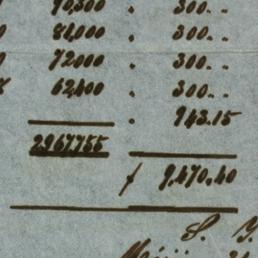 70,500 " 300. .
81,000 " 300. .
72000 " 300. .
62,400 " 300. .
" 943.15
2967755
f 9,470,40
S.